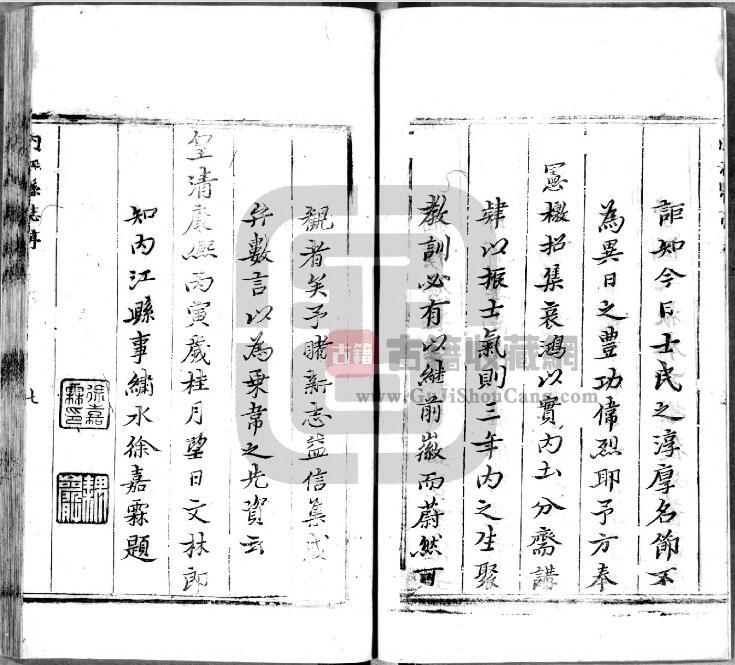 詎知今日士民之淳厚名節不
為異日之豐功偉烈耶予方奉
憲檄招集哀鴻以實內土分齋講
肄以振士氣則三年內之生聚
教訓必有以継前徽而蔚然可
觀者矣予睹新志益信集成
弁數言以為乗韋之先資云
皇清康熙丙寅歲桂月望日文林郎
知內江縣事繡水徐嘉霖題
徐嘉霖印
內江縣志序
七
古籍
古籍收藏網
www.GuJiShouCang.com